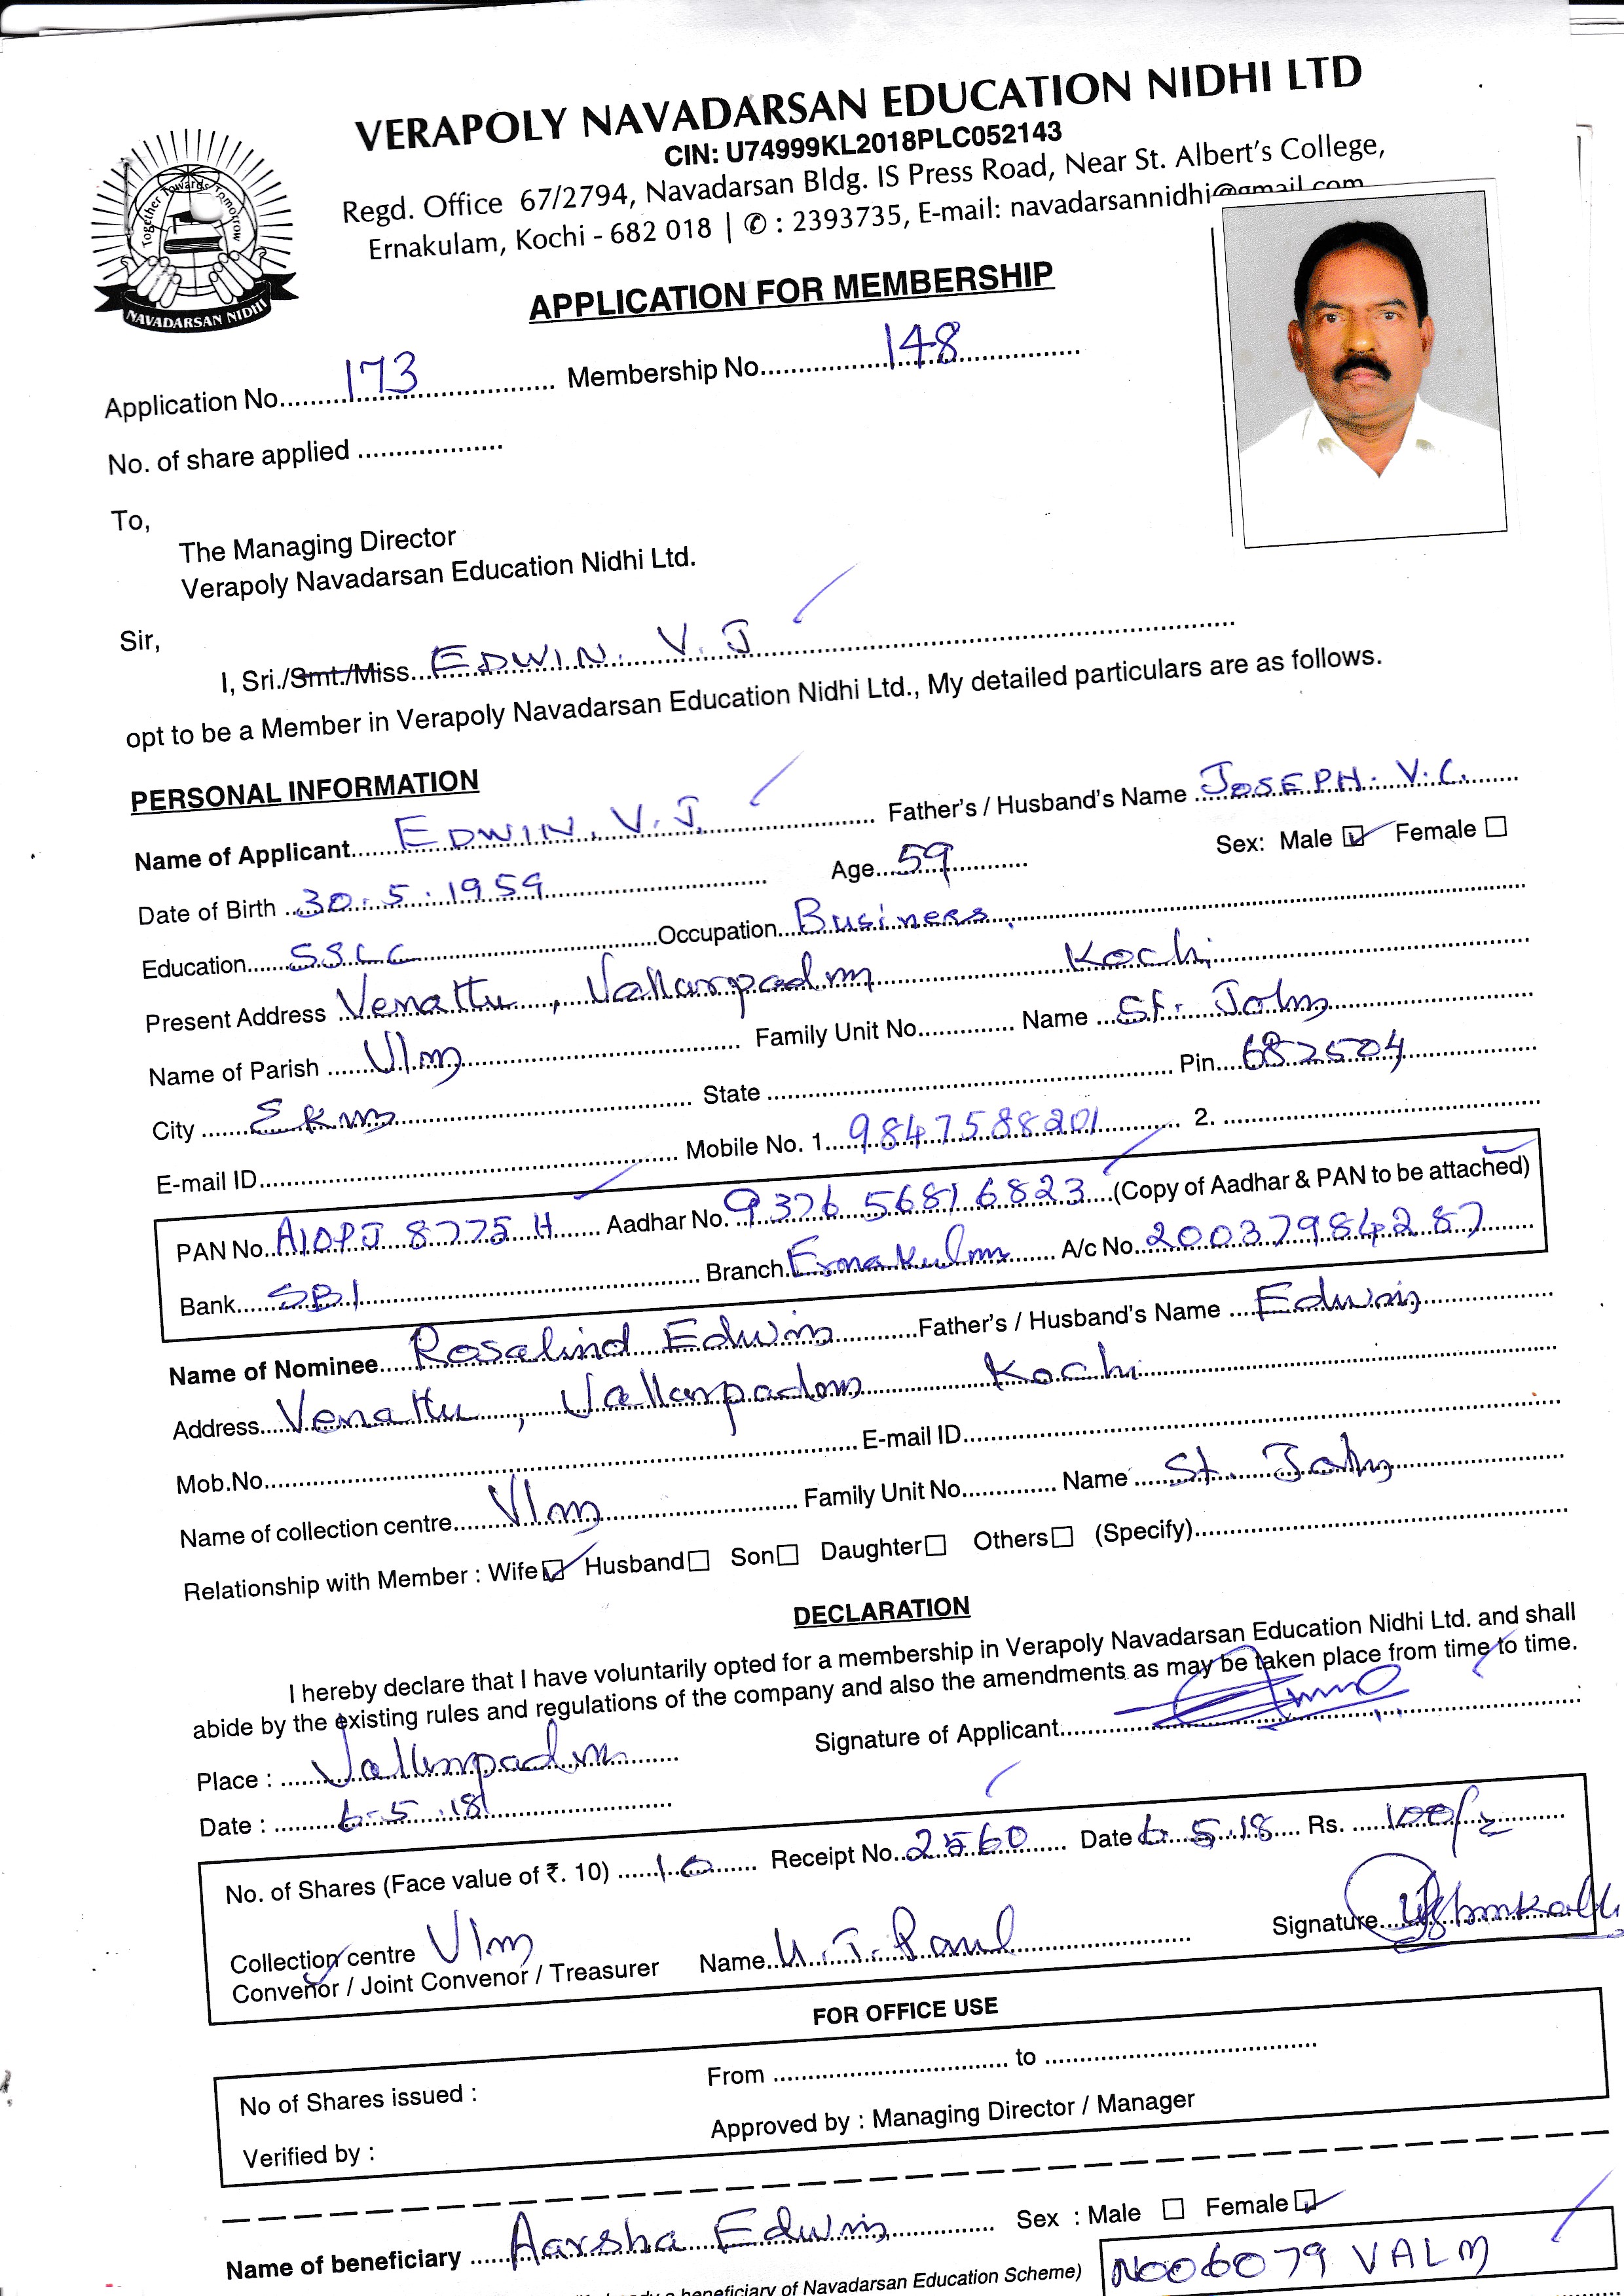 VERAPOLY NAVADARSAN EDUCATION NIDHI LTD
CIN: U74999KL2018PLC052143
Regd. Office 67/2794, Navadarsan Bldg. IS Press Road, Near St. Albert's College,
Ernakulam, Kochi - 682 018 | ✆ : 2393735, E-mail: navadarsannidhi@gmail.com
Together Towards Tomorrow
NAVADARSAN NIDHI
APPLICATION FOR MEMBERSHIP
Application No. 173 Membership No. 148
No. of share applied
To,
The Managing Director
Verapoly Navadarsan Education Nidhi Ltd.
Sir,
I, Sri./Smt./Miss. EDWIN. V. J
opt to be a Member in Verapoly Navadarsan Education Nidhi Ltd., My detailed particulars are as follows.
PERSONAL INFORMATION
Name of Applicant EDWIN. V. J. Father's / Husband's Name JOSEPH. V.C.
Date of Birth 30.5.1959 Age 59 Sex: Male ☑ Female ☐
Education SSLC Occupation Business
Present Address Venattu, Vallarpadam Kochi
Name of Parish Vlm Family Unit No. Name St. John
City Ekm State Pin. 682504
E-mail ID Mobile No. 1. 9847588201 2.
PAN No. AIOPJ 8775 H Aadhar No. 9376 5681 6823 (Copy of Aadhar & PAN to be attached)
Bank SBI Branch Ernakulam A/c No. 20037984287
Name of Nominee Rosalind Edwin Father's / Husband's Name Edwin
Address Venattu, Vallarpadam Kochi
Mob.No. E-mail ID
Name of collection centre Vlm Family Unit No. Name St. John
Relationship with Member : Wife ☑ Husband ☐ Son ☐ Daughter ☐ Others ☐ (Specify)
DECLARATION
I hereby declare that I have voluntarily opted for a membership in Verapoly Navadarsan Education Nidhi Ltd. and shall
abide by the existing rules and regulations of the company and also the amendments as may be taken place from time to time.
Signature of Applicant
Place : Vallarpadam
Date : 6-5-18
No. of Shares (Face value of ₹. 10) 10 Receipt No. 2560 Date 6.5.18 Rs. 100/-
Collection centre Vlm
Convenor / Joint Convenor / Treasurer Name U. T. Paul Signature
FOR OFFICE USE
No of Shares issued : From to
Verified by : Approved by : Managing Director / Manager
Name of beneficiary Aarsha Edwin Sex : Male ☐ Female ☑
beneficiary of Navadarsan Education Scheme) N006079 VALM